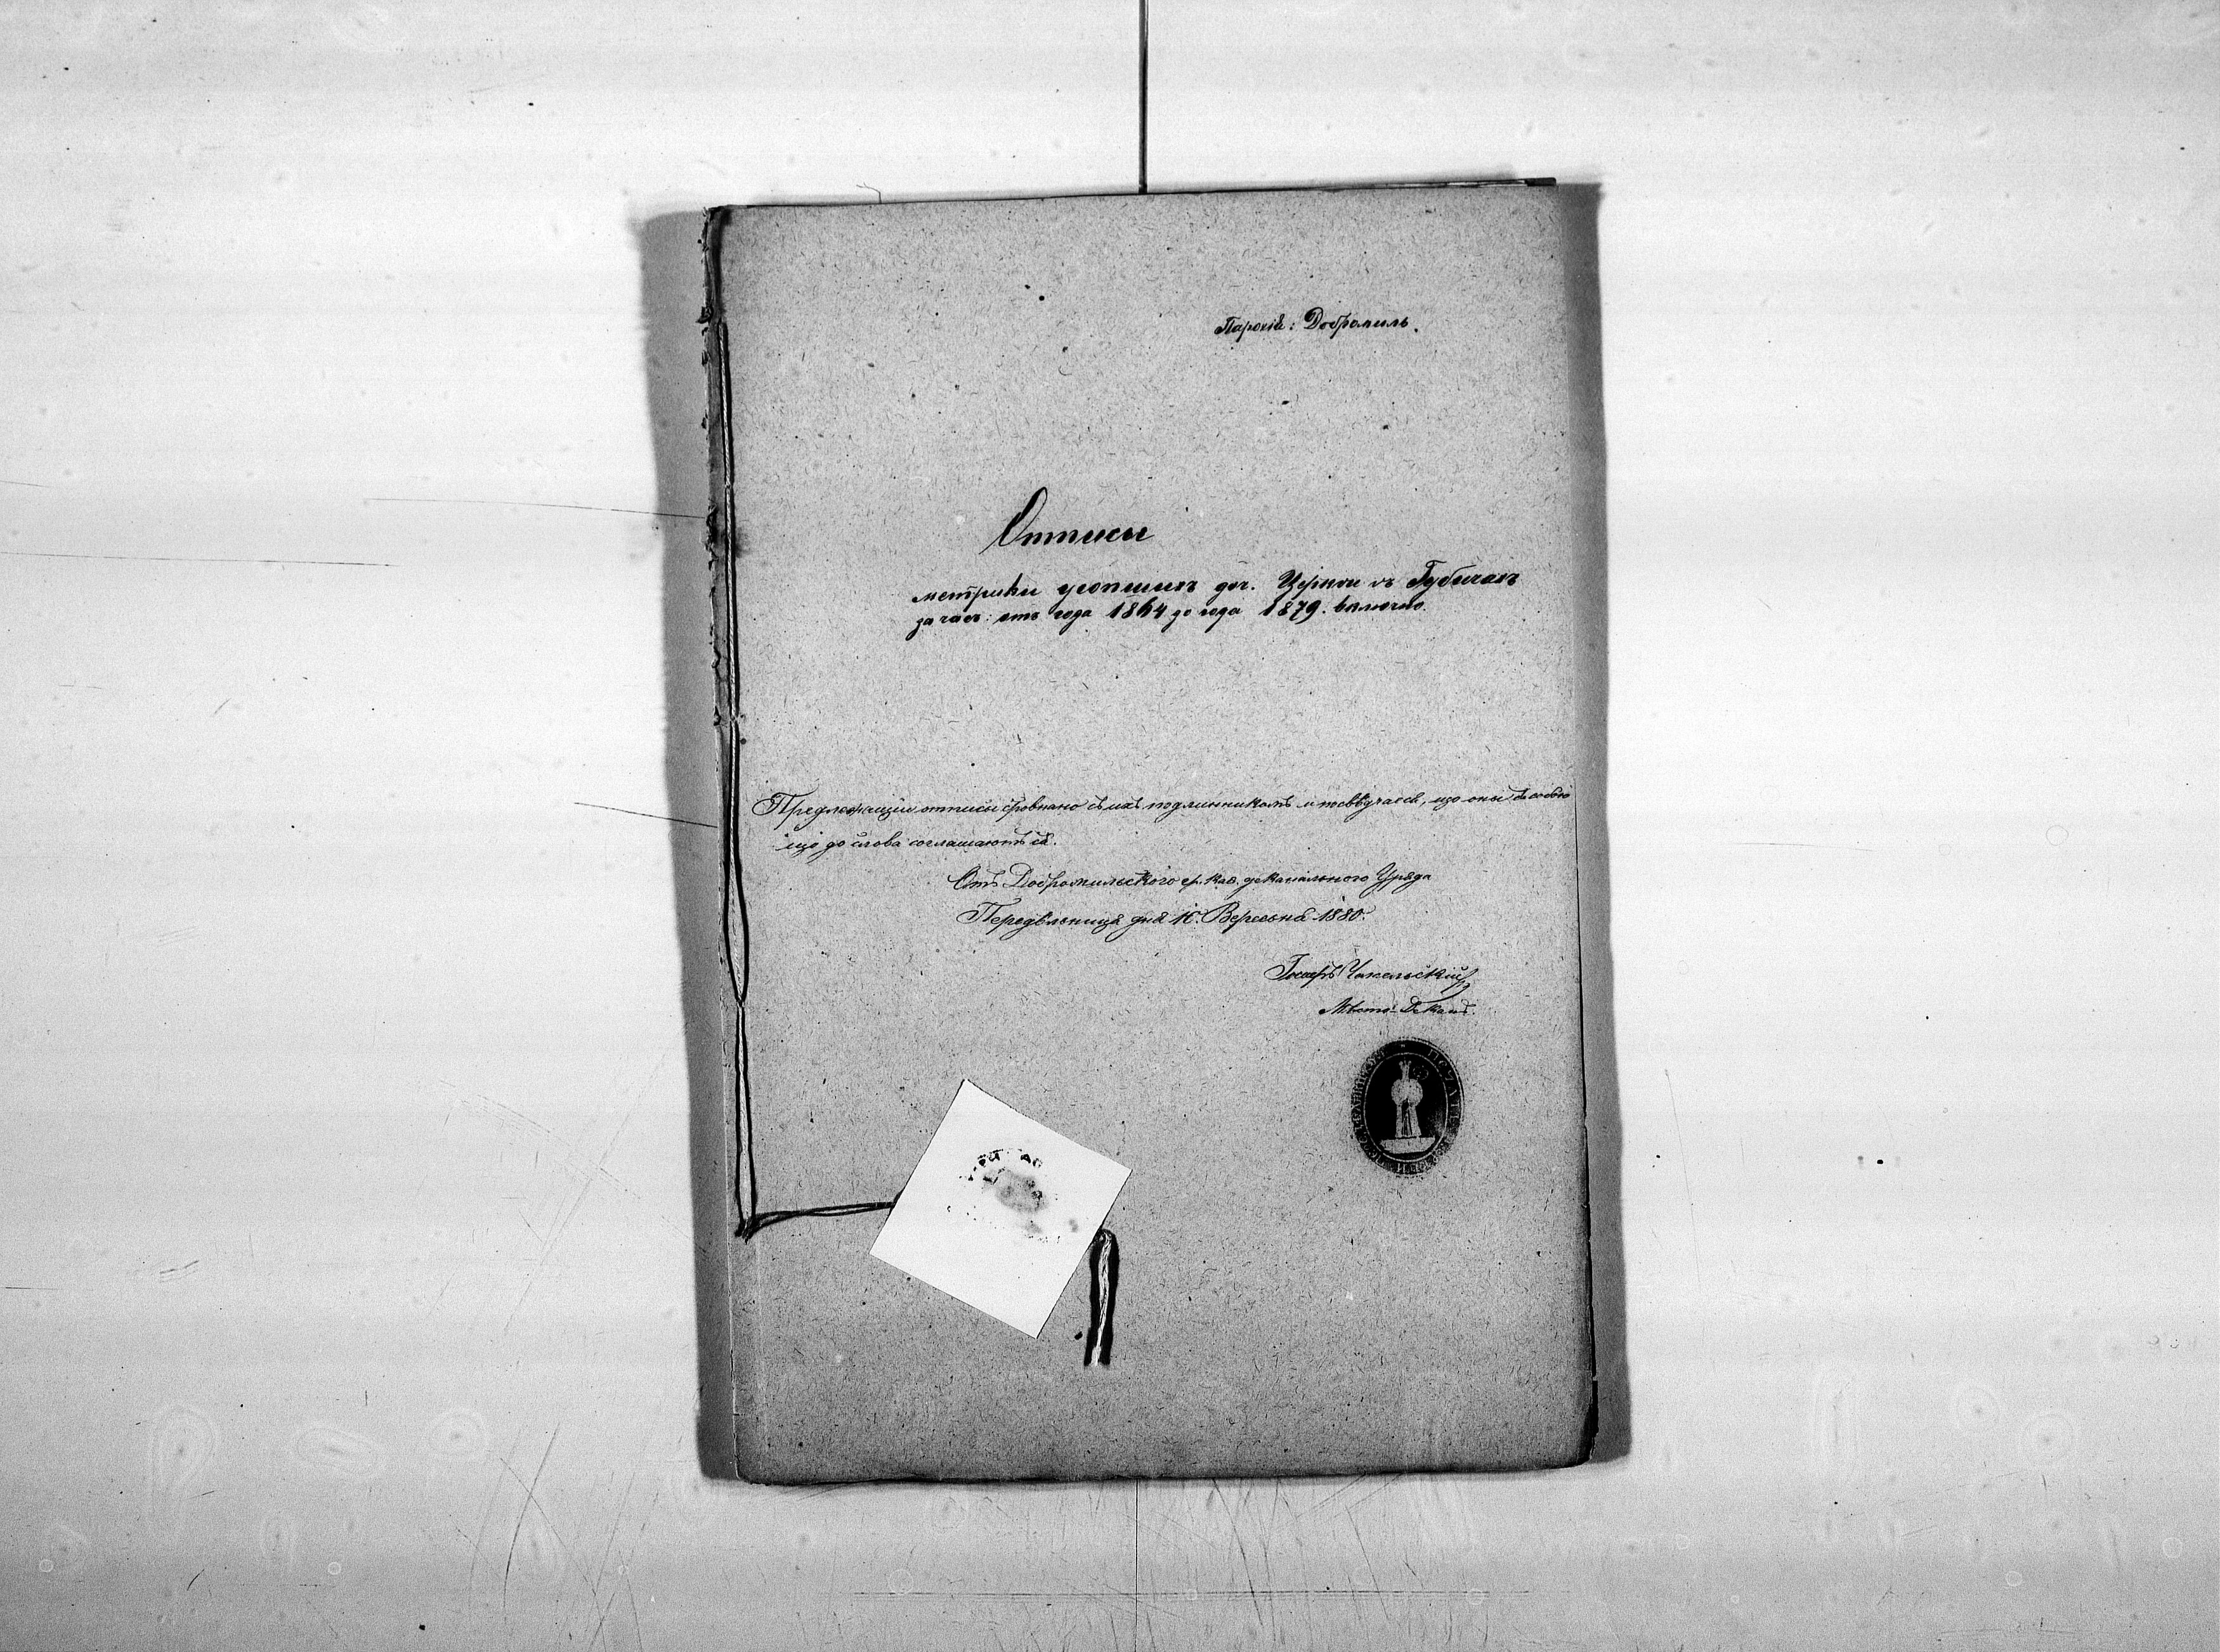 Парохія: Добромиль.
Отписы
метрики усопшихъ доч. Церкви въ Губичахъ
за час: отъ года 1864 до года 1879. включно.
Предлежащіи отписы сровнано съ ихъ подлинникомъ и посвѣдчаєся, що оны съ собою
що до слова соглашаютъ ся.
Отъ Добромильского гр. кат. деканального Уряда
Передѣльница дня 10. Вересня 1880.
Чапельскій
Мѣсто-Деканъ.